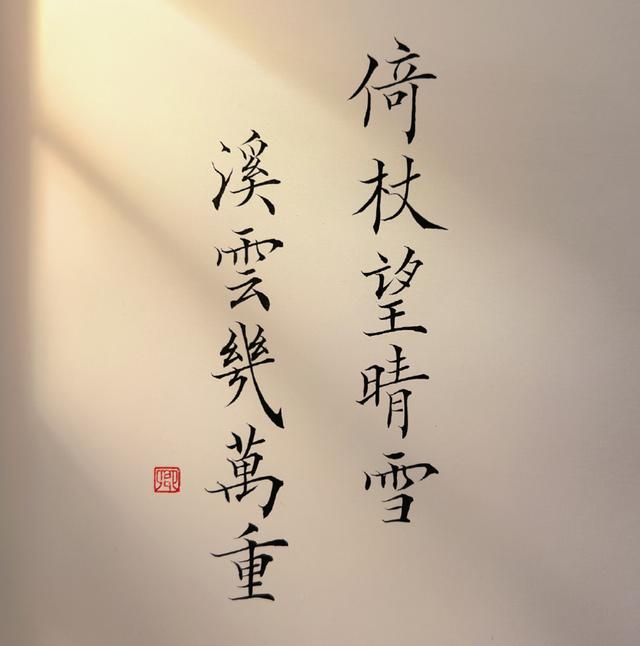 倚杖望晴雪
溪雲幾萬重
卿